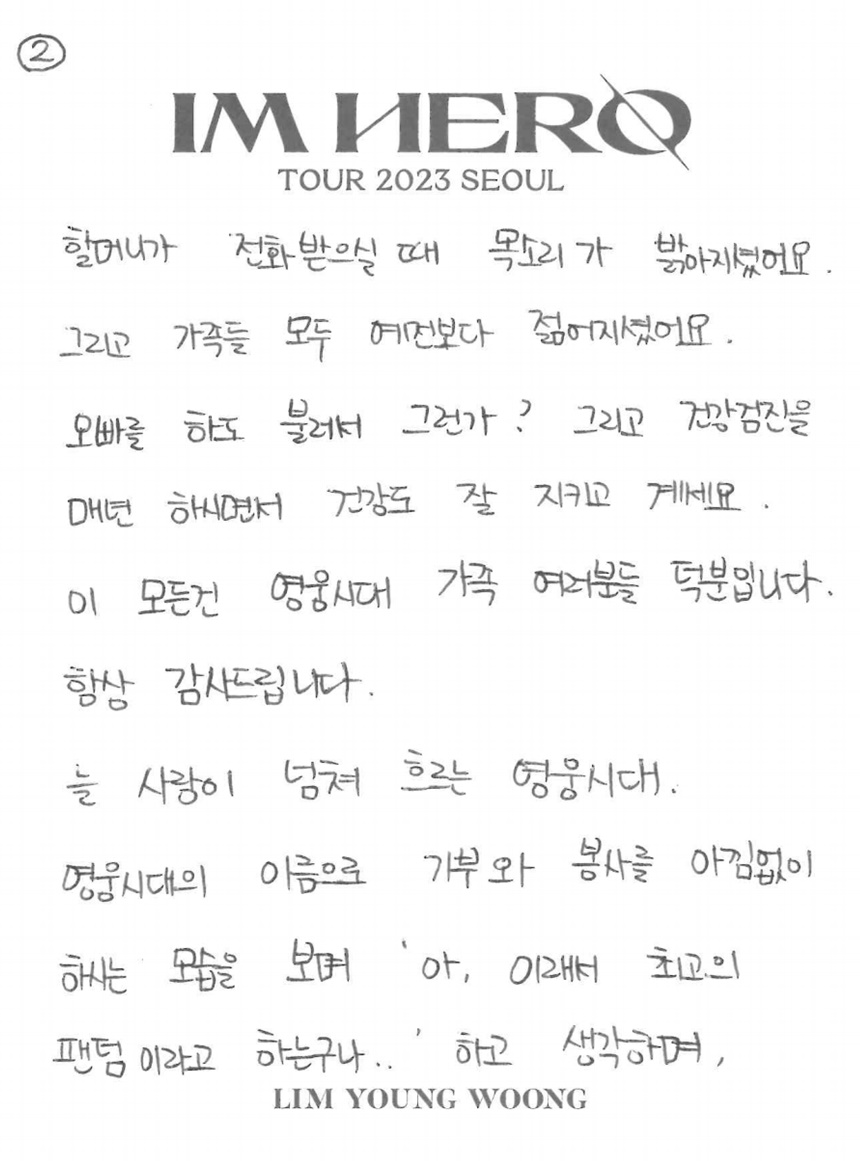 ②
IM HERO
TOUR 2023 SEOUL
할머니가 전화 받으실 때 목소리가 밝아지셨어요.
그리고 가족들 모두 예전보다 젊어지셨어요.
오빠를 하도 불러서 그런가? 그리고 건강검진을
매년 하시면서 건강도 잘 지키고 계세요.
이 모든건 영웅시대 가족 여러분들 덕분입니다.
항상 감사드립니다.
늘 사랑이 넘쳐 흐르는 영웅시대.
영웅시대의 이름으로 기부와 봉사를 아낌없이
하시는 모습을 보며 '아, 이래서 최고의
팬덤이라고 하는구나..' 하고 생각하며,
LIM YOUNG WOONG